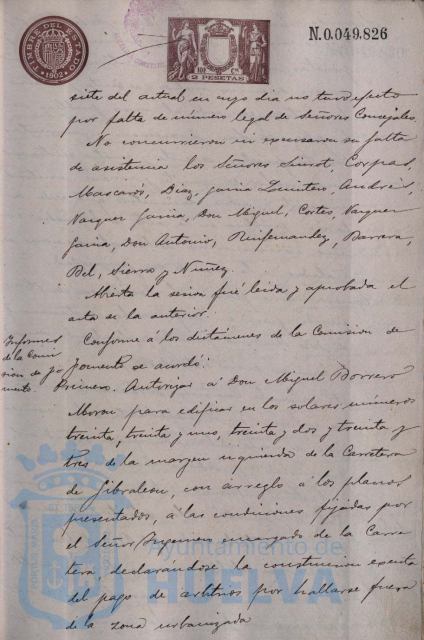 TIMBRE DEL ESTADO
1902
2 PESETAS
N.0.049.826
siete del actual en cuyo dia no tuvo efecto
por falta de número legal de Señores Concejales.
No concurrieron ni excusaron su falta
de asistencia los Señores Corpas,
Mascarós, Diaz, Garcia Quintero, Andrés,
Vazquez Garcia, Don Miguel, Cortes, Vazquez
Garcia, Don Antonio, Barrera,
Bel, Sierra y Nuñez.
Abierta la sesion fué leida y aprobada el
acta de la anterior.
Informes
de la Comi
sion de Fo
mento.
Conforme á los dictámenes de la Comision de
Fomento se acordó:
Primero. Autorizar á Don Miguel Borrero
Moran para edificar en los solares números
treinta, treinta y uno, treinta y dos y treinta y
tres de la margen izquierda de la Carretera
de Gibraleon, con arreglo á los planos
presentados, á las condiciones fijadas por
el Señor Ingeniero encargado de la Carre
tera, declarándose la construccion exenta
del pago de arbitrios por hallarse fuera
de la zona urbanizada
Ayuntamiento de
HUELVA